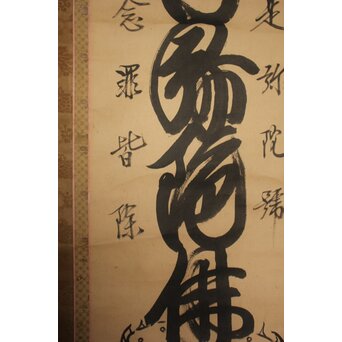 是弥陀號
弥陀佛
念罪皆除